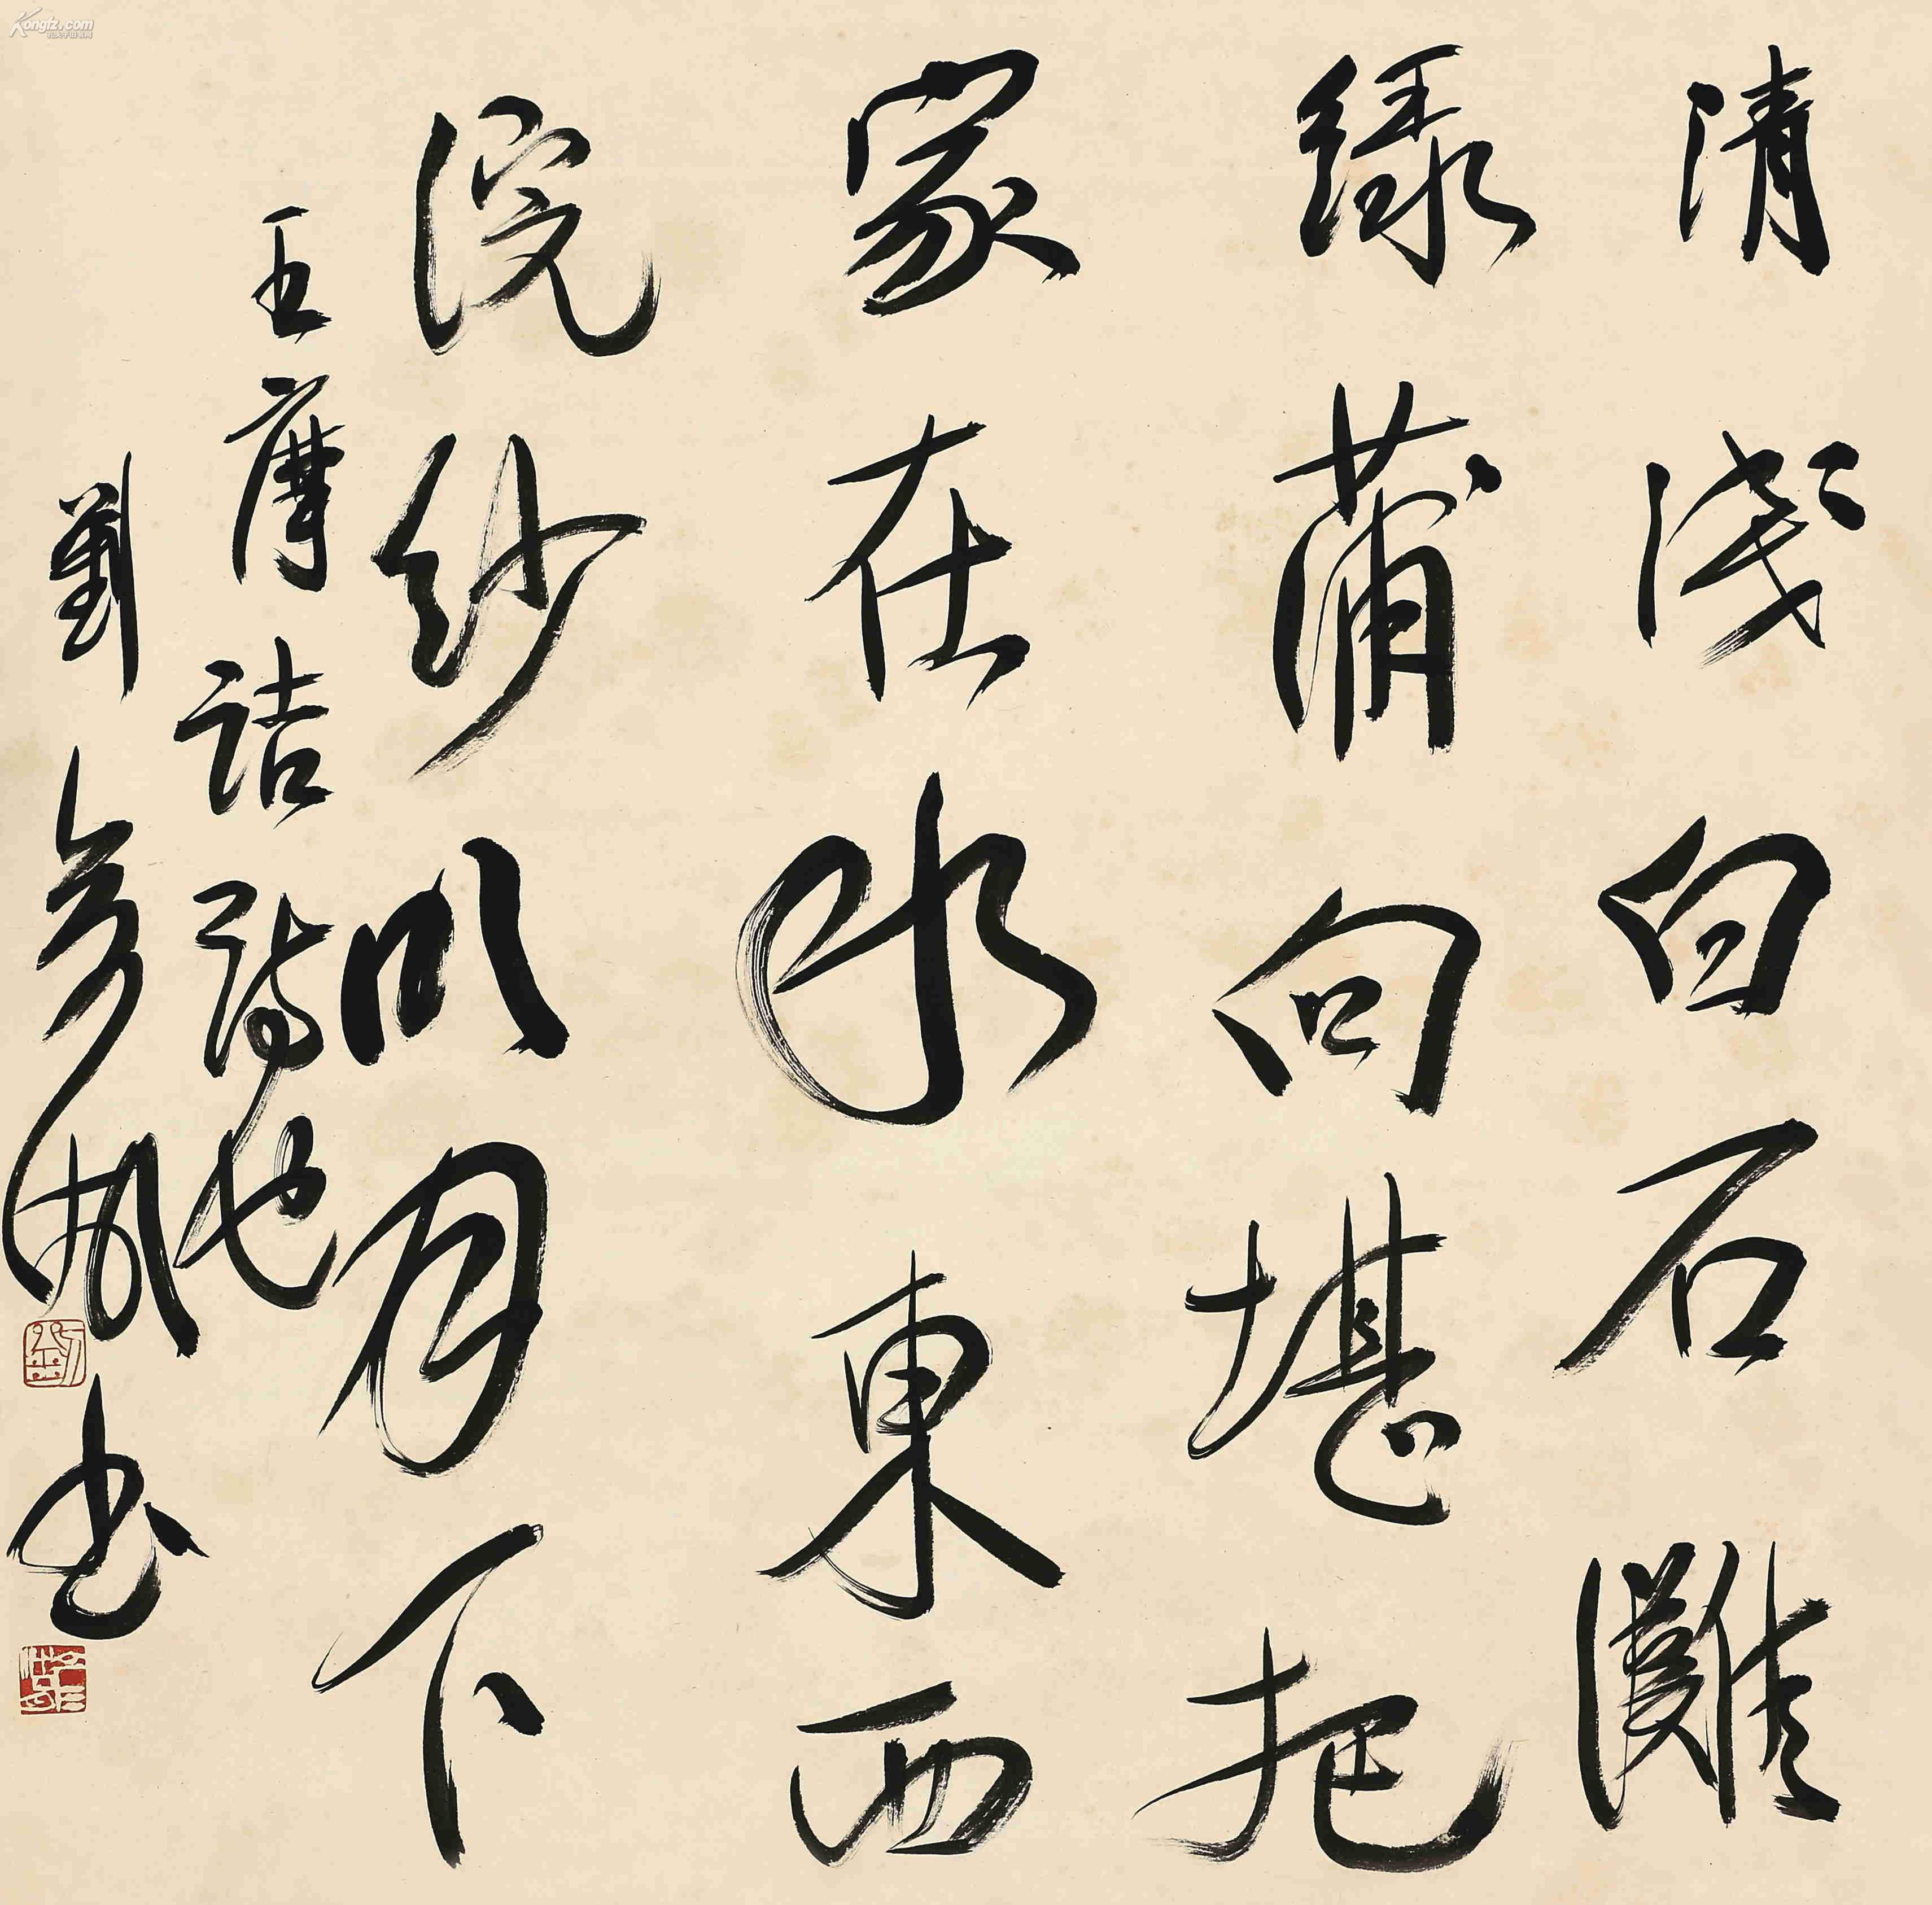 清淺白石灘
綠蒲向堪把
家在水東西
浣紗明月下
王摩詰詩也
劉 書
Kongfz.com